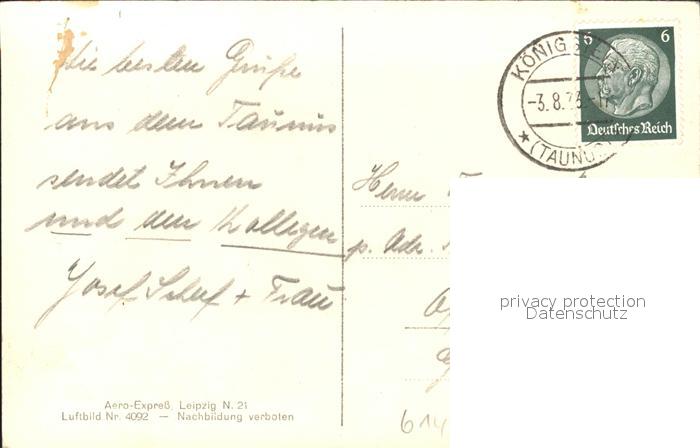 Die besten Grüße
aus dem Taunus
sendet Ihnen
und den Kollegen
Josef + Frau
Aero-Expreß, Leipzig N. 21
Luftbild Nr. 4092 — Nachbildung verboten
6 6
Deutsches Reich
KÖNIGSTEIN
-3.8.
(TAUNUS)
Herrn
p. Adr.
614
privacy protection
Datenschutz